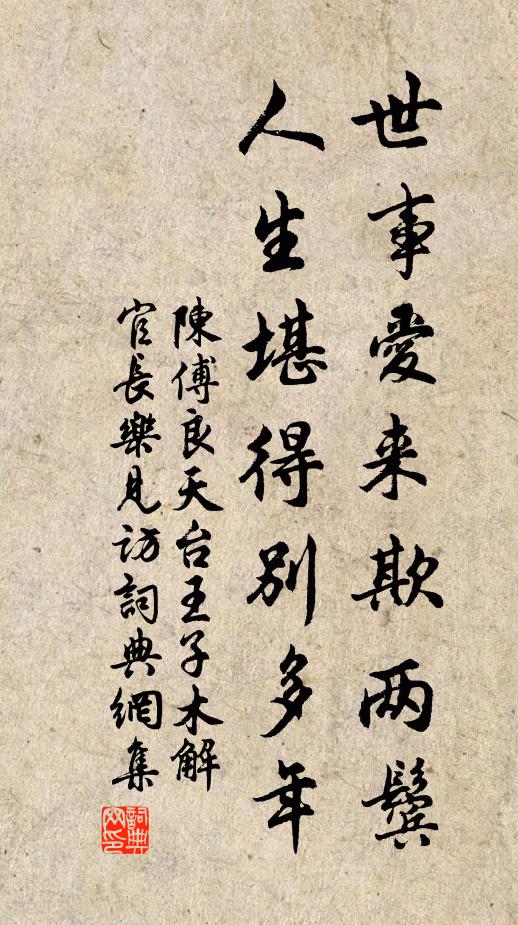 世事愛来欺两鬓
人生堪得别多年
陳傅良天台王子木解
官長樂見访詞典網集
詞典
网印